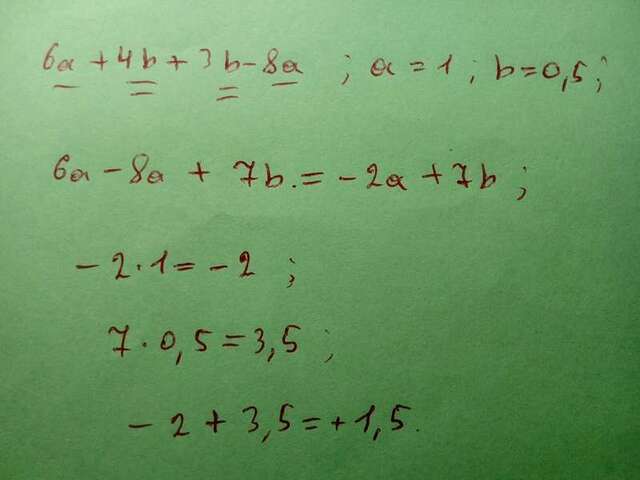 6a + 4b + 3b - 8a ; a = 1 ; b = 0,5 ;
6a - 8a + 7b. = - 2a + 7b ;
- 2 · 1 = - 2 ;
7 · 0,5 = 3,5 ;
- 2 + 3,5 = + 1,5.